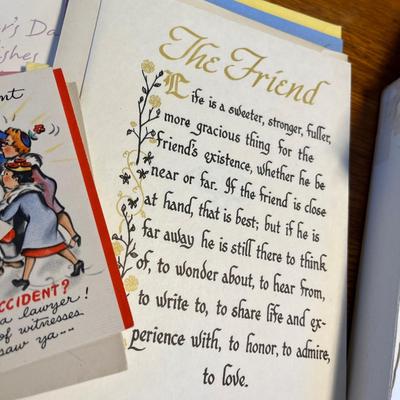 r's Da
ishes
nt
CCIDENT?
a lawyer!
of witnesses
saw ya--
The Friend
Life is a sweeter, stronger, fuller,
more gracious thing for the
friend's existence, whether he be
near or far. If the friend is close
at hand, that is best; but if he is
far away he is still there to think
of, to wonder about, to hear from,
to write to, to share life and ex-
perience with, to honor, to admire,
to love.